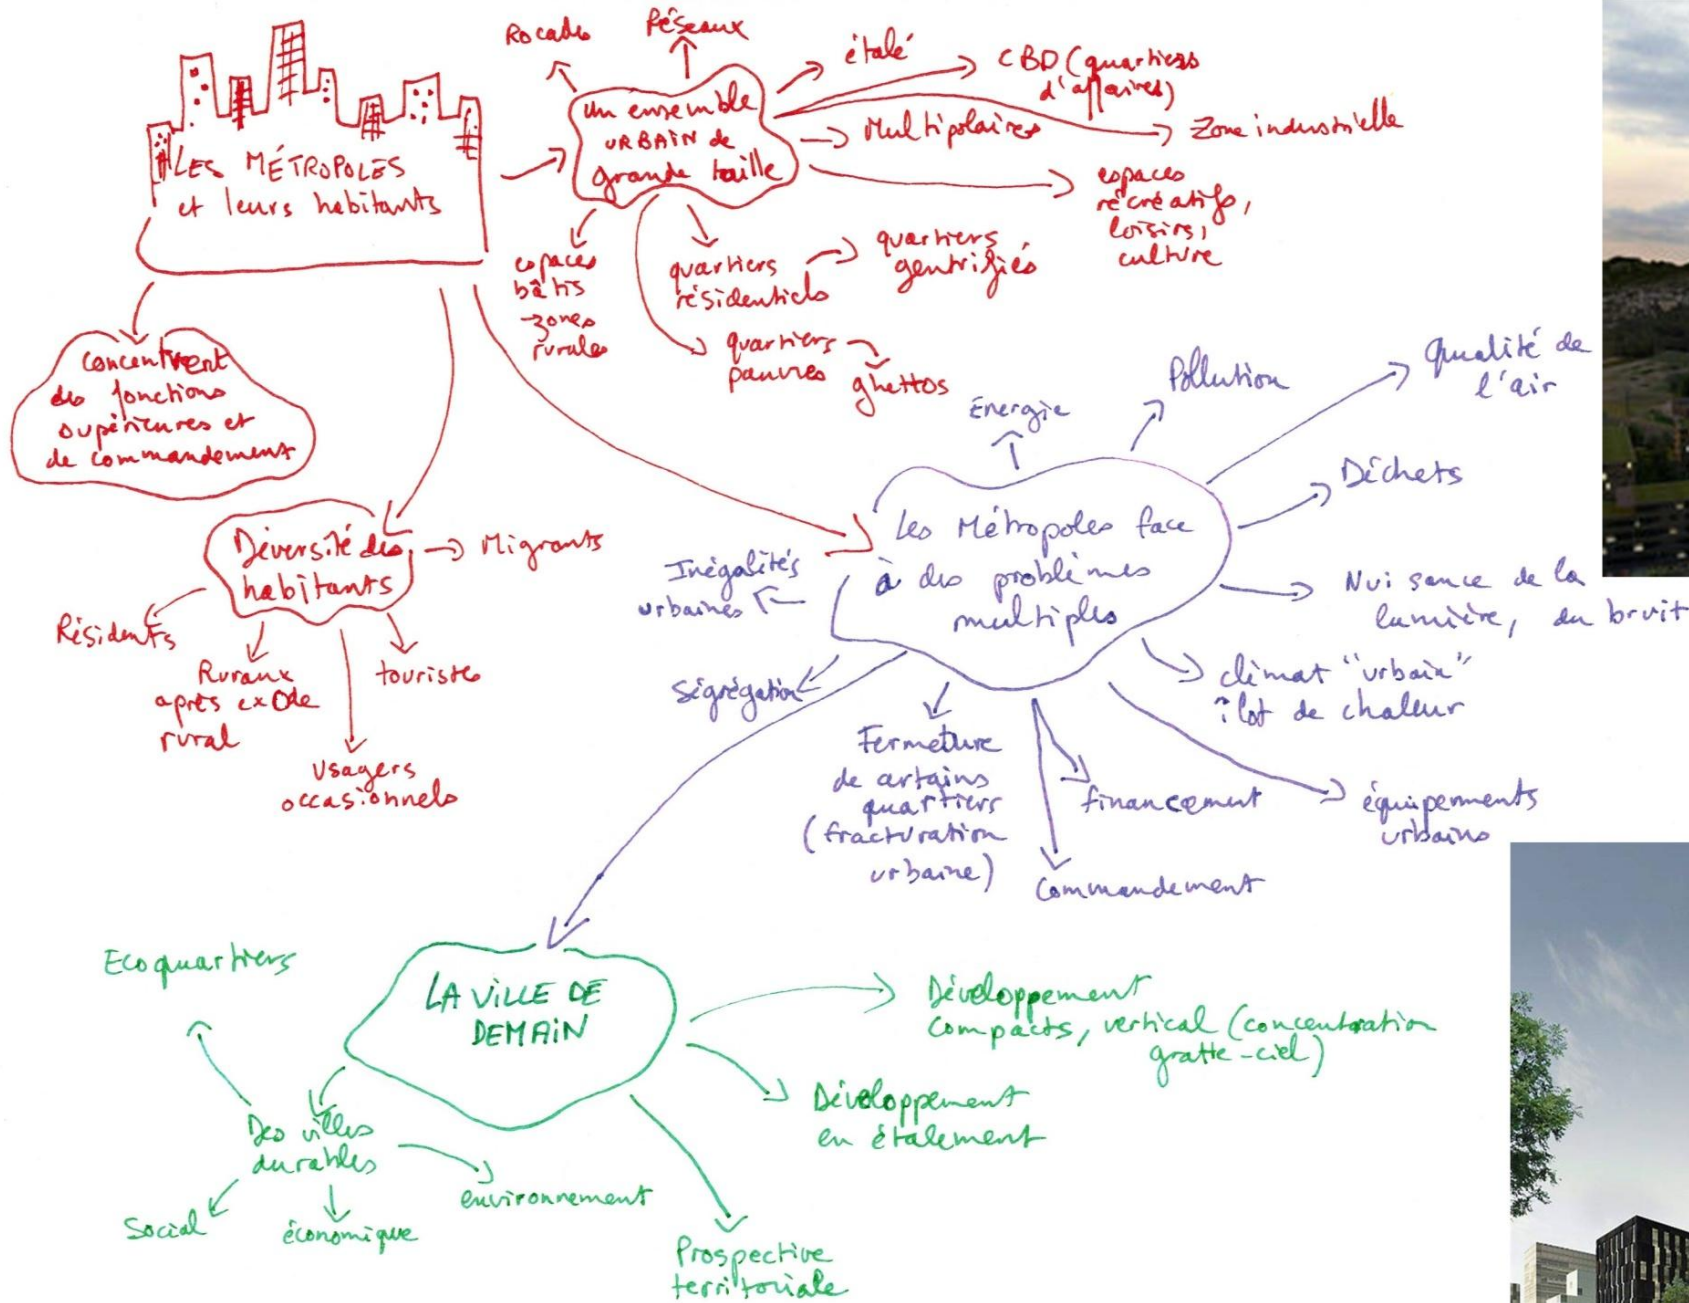 LES MÉTROPOLES
et leurs habitants
Rocades
Réseaux
étalé
CBD (quartiers
d'affaires)
Multipolaires
Zone industrielle
espaces
récréatifs,
loisirs,
culture
un ensemble
URBAIN de
grande taille
espaces
bâtis
zones
rurales
quartiers
résidentiels
quartiers
gentrifiés
quartiers
pauvres
ghettos
concentrent
des fonctions
supérieures et
de commandement
Diversité des
habitants
Migrants
Résidents
Ruraux
après exode
rural
Usagers
occasionnels
touristes
Les Métropoles face
à des problèmes
multiples
Énergie
Pollution
Qualité de
l'air
Déchets
Nuisance de la
lumière, du bruit
climat "urbain"
îlot de chaleur
équipements
urbains
financement
Commandement
Fermeture
de certains
quartiers
(fracturation
urbaine)
Ségrégation
Inégalités
urbaines
LA VILLE DE
DEMAIN
Ecoquartiers
Des villes
durables
Social
économique
environnement
Développement
compacts, vertical (concentration
gratte-ciel)
Développement
en étalement
Prospective
territoriale